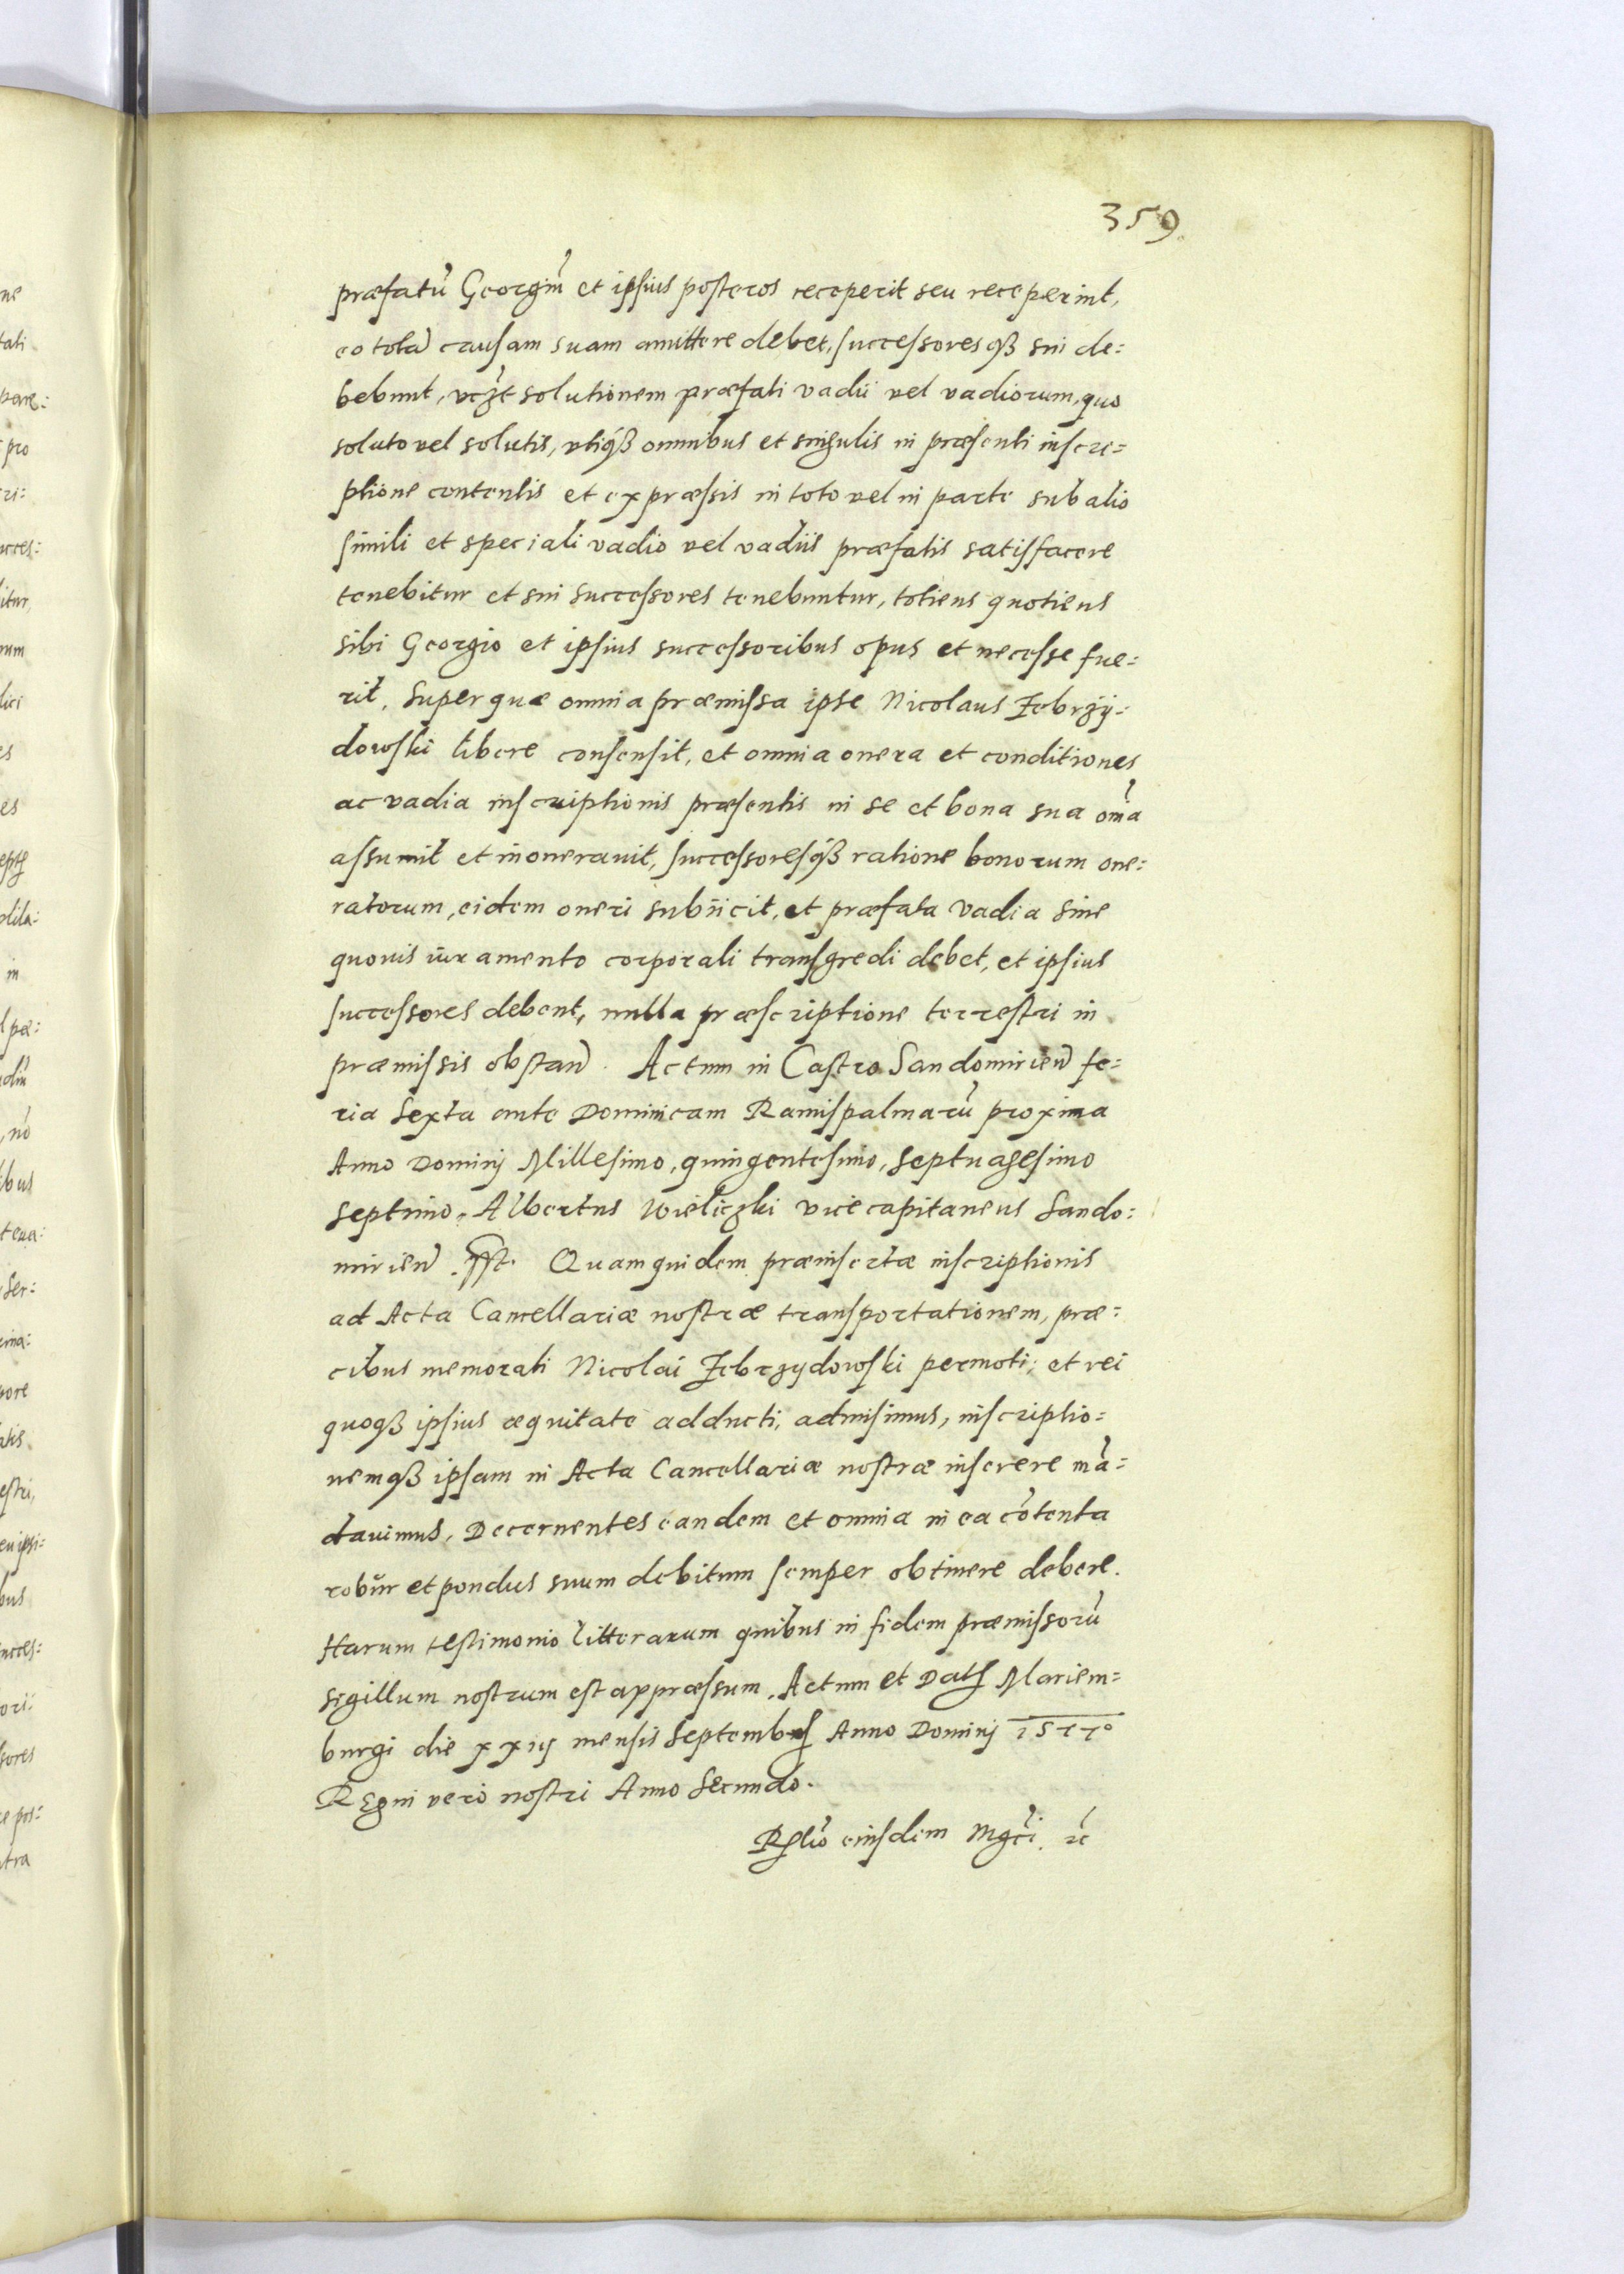 359.
præfatũ Georgiũ et ipsius posteros receperit seu receperint,
eo totã causam suam amittere debet, successoresqꝫ sui de:
bebunt, solutionem præfati vadii vel vadiorum, quo
soluto vel solutis, vtiqꝫ omnibus et singulis in præsenti inscri=
ptione contentis et expræssis in toto vel in parte sub alio
simili et speciali vadio vel vadiis præfatis satisfacere
tenebitur et sui successores tenebuntur, totiens quotiens
sibi Georgio et ipsius successoribus opus et necesse fue=
rit. Super quæ omnia præmissa ipse Nicolaus Zebrzÿ:
dowski libere consensit, et omnia onera et conditiones
ac vadia inscriptionis præsentis in se et bona sua om̃ia
assumit et inonerauit, successoresqꝫ ratione bonorum one:
ratorum, eidem oneri subiicit, et præfata vadia sine
quouis iuramento corporali transgredi debet, et ipsius
successores debent, nulla præscriptione terrestri in
præmissis obstañ. Actum in Castro Sandomirieñ fe=
ria Sexta ante Dominicam Ramispalmarũ proxima
Anno Dominij Millesimo, quingentesimo, Septuagesimo
Septimo. Albertus Wieliczki vicecapitaneus Sando:
mirieñ sst. Quamquidem præinsertæ inscriptionis
ad Acta Cancellariæ nostræ transportationem, præ=
cibus memorati Nicolai Zebrzydowski permoti, et rei
quoqꝫ ipsius æquitate adducti, admisimus, inscriptio=
nemqꝫ ipsam in Acta Cancellariæ nostræ inserere mã=
dauimus, Decernentes eandem et omnia in ea cõtenta
robur et pondus suum debitum semper obtinere debere.
Harum testimonio litterarum quibus in fidem præmissorũ
sigillum nostrum est appræssum. Actum et Datꝭ Mariem=
burgi die xxiij mensis Septembrꝭ Anno Dominij 1577o
Regni vero nostri Anno Secundo.
Rꝭlio eiusdem Mgci. ꝛc